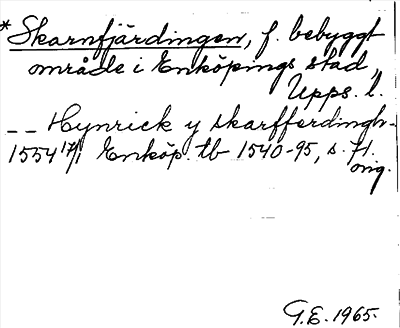 * Skarnfjärdingen, f. bebyggt
område i Enköpings stad,
Upps. l.
-- Hynrick y skarfferdingh-
1554 17/1 Enköp. tb 1540-95, s. 71.
orig.
G.E. 1965.